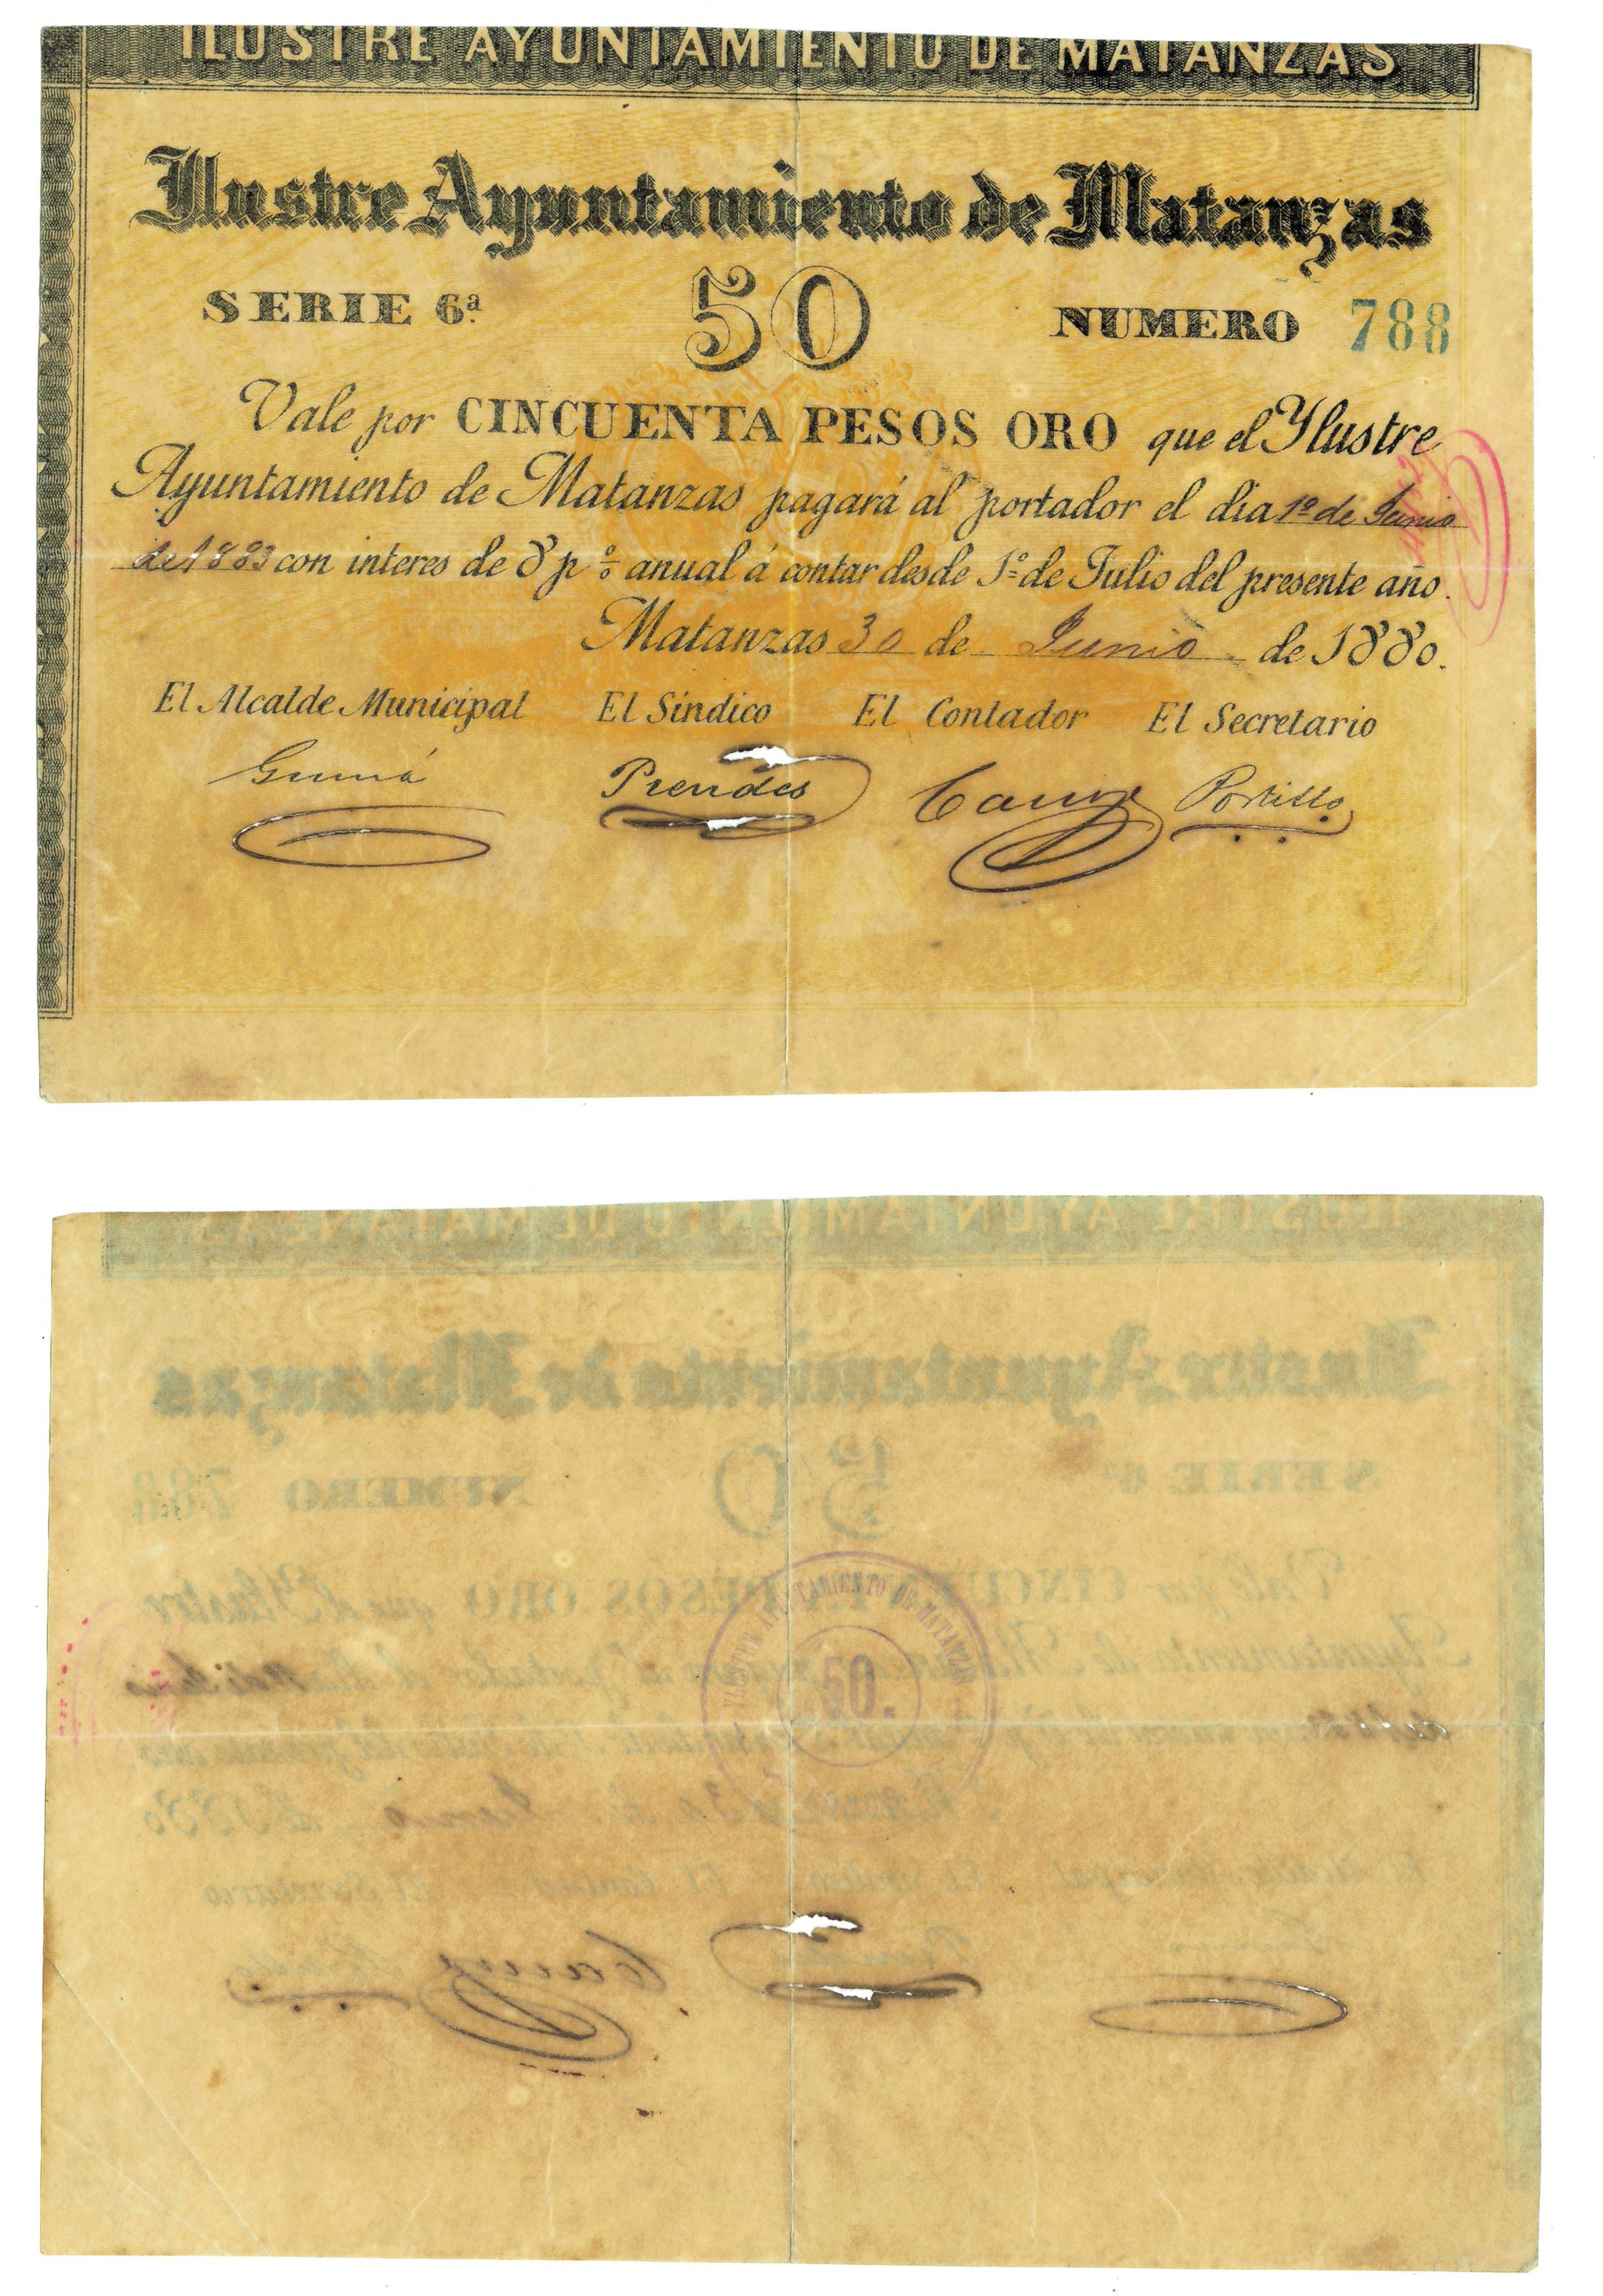 ILUSTRE AYUNTAMIENTO DE MATANZAS
Ilustre Ayuntamiento de Matanzas
SERIE 6ª 50 NUMERO 788
Vale por CINCUENTA PESOS ORO que el Ylustre
Ayuntamiento de Matanzas pagará al portador el dia 1º de Junio
de 1883 con interes de 8 p% anual á contar desde 1º de Julio del presente año.
Matanzas 30 de Junio de 1880.
El Alcalde Municipal El Sindico El Contador El Secretario
Gumá Prendes Portillo
ILUSTRE AYUNTAMIENTO DE MATANZAS
50.